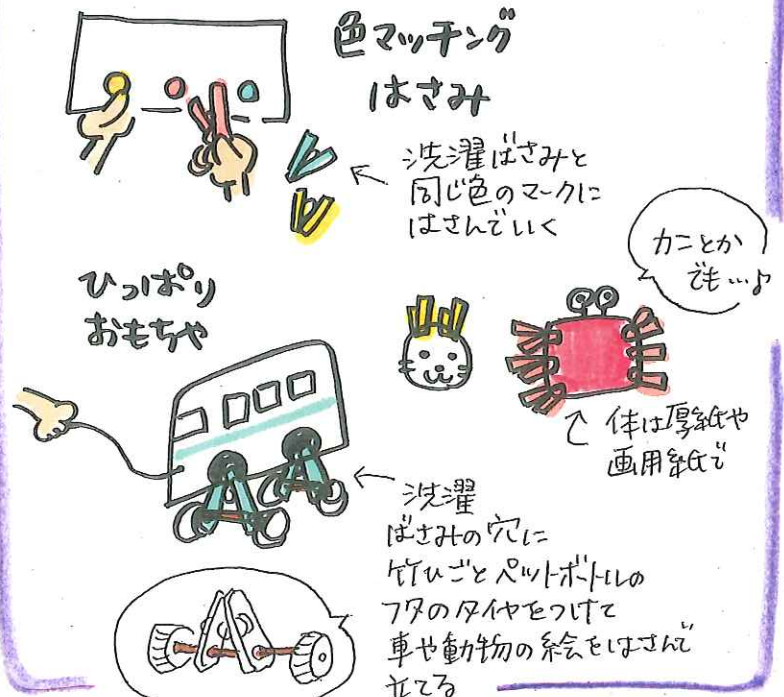 色マッチング
はさみ
洗濯ばさみと
同じ色のマークに
はさんでいく
カニとか
でも…♪
ひっぱり
おもちゃ
体は厚紙や
画用紙で
洗濯
ばさみの穴に
竹ひごとペットボトルの
フタのタイヤをつけて
車や動物の絵をはさんで
立てる